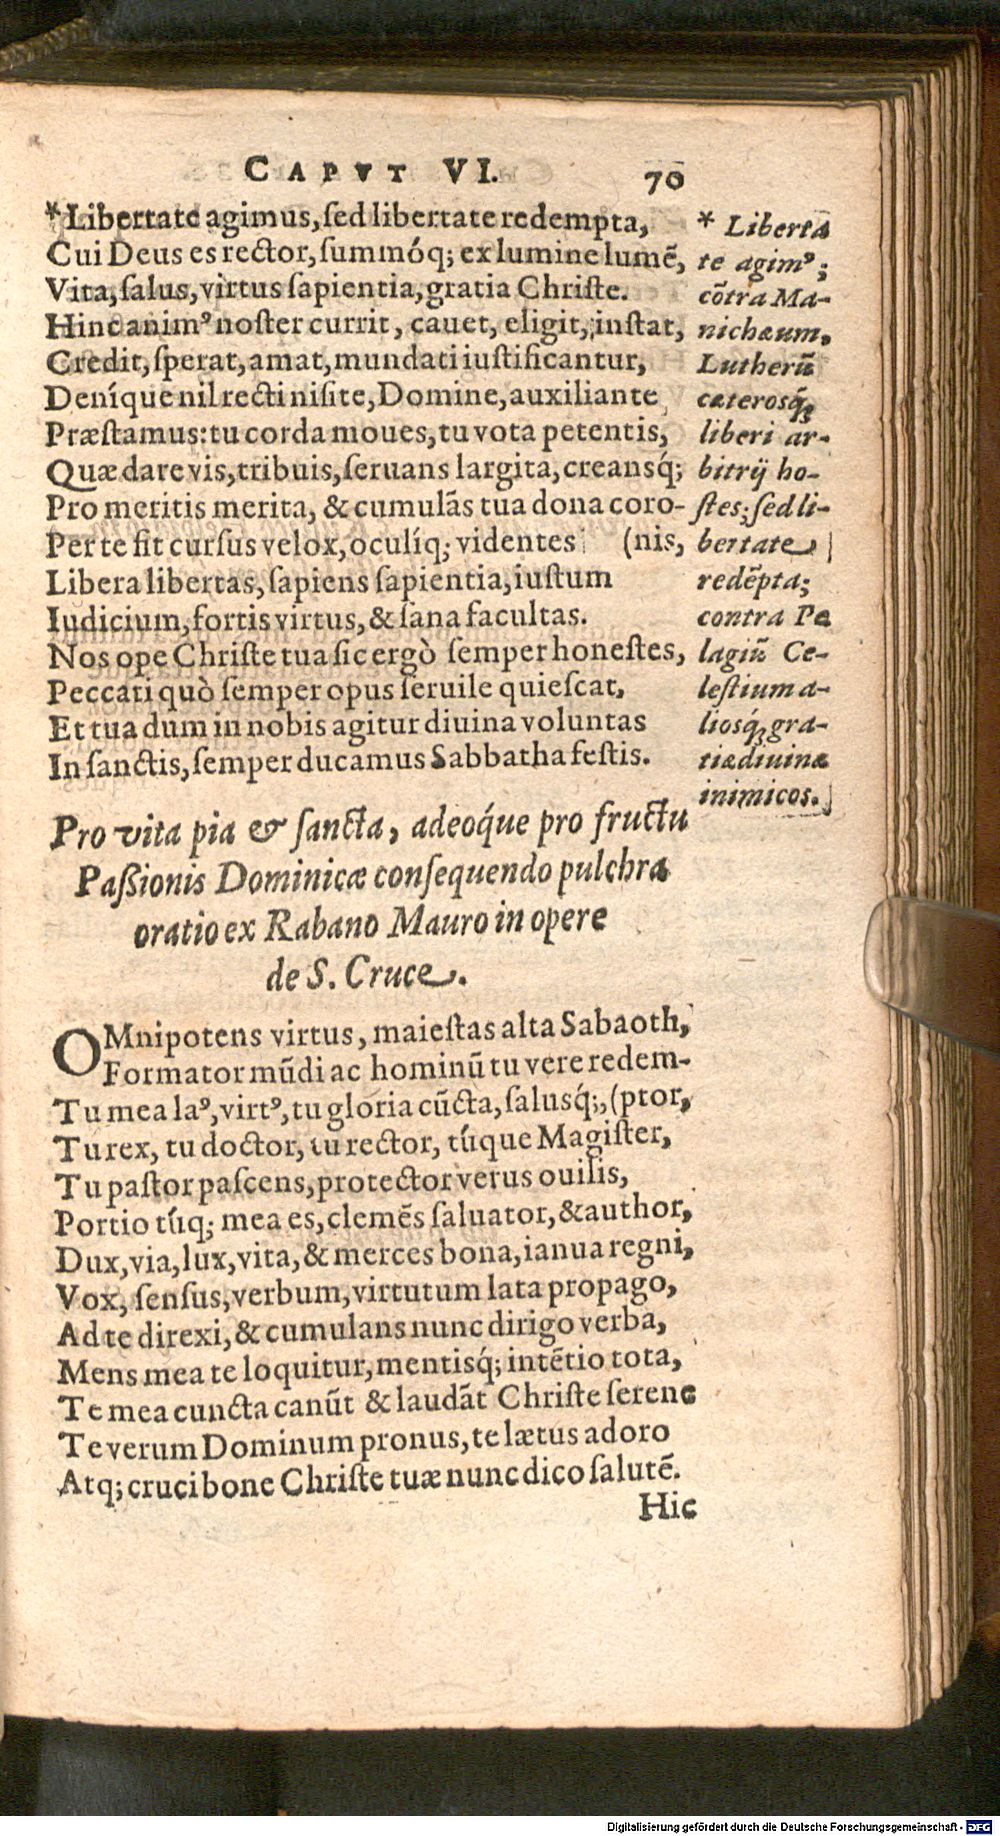 CAPVT VI. 70
*Libertate agimus, sed libertate redempta,
Cui Deus es rector, summóq; ex lumine lumẽ,
Vita, salus, virtus sapientia, gratia Christe.
Hinc animꝰ noster currit, cauet, eligit, instat,
Credit, sperat, amat, mundati iustificantur,
Deníque nil recti nisi te, Domine, auxiliante
Præstamus: tu corda moues, tu vota petentis,
Quæ dare vis, tribuis, seruans largita, creansq́;
Pro meritis merita, & cumulãs tua dona coro-
Per te fit cursus velox, oculíq; videntes (nis,
Libera libertas, sapiens sapientia, iustum
Iudicium, fortis virtus, & sana facultas.
Nos ope Christe tua sic ergò semper honestes,
Peccati quò semper opus seruile quiescat,
Et tua dum in nobis agitur diuina voluntas
In sanctis, semper ducamus Sabbatha festis.
* Liberta
te agimꝰ;
cõtra Ma-
nichæum,
Lutherũ
cæterosq́;
liberi ar-
bitrij ho-
stes; sed li-
bertate
redẽpta;
contra Pe
lagiũ Ce-
lestium a-
liosq́; gra-
tiæ diuinæ
inimicos.
Pro vita pia & sancta, adeóque pro fructu
Passionis Dominicæ consequendo pulchra
oratio ex Rabano Mauro in opere
de S. Cruce.
OMnipotens virtus, maiestas alta Sabaoth,
Formator mũdi ac hominũ tu vere redem-
Tu mea laꝰ, virtꝰ, tu gloria cũcta, salusq́;, (ptor,
Tu rex, tu doctor, tu rector, túque Magister,
Tu pastor pascens, protector verus ouilis,
Portio túq; mea es, clemẽs saluator, & author,
Dux, via, lux, vita, & merces bona, ianua regni,
Vox, sensus, verbum, virtutum lata propago,
Ad te direxi, & cumulans nunc dirigo verba,
Mens mea te loquitur, mentisq́; intẽtio tota,
Te mea cuncta canũt & laudãt Christe serene
Te verum Dominum pronus, te lætus adoro
Atq; cruci bone Christe tuæ nunc dico salutẽ.
Hic
Digitalisierung gefördert durch die Deutsche Forschungsgemeinschaft - DFG